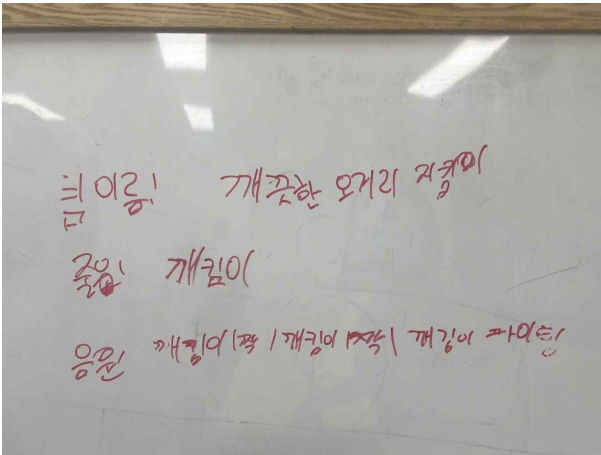 팀이름! 깨끗한 오거리 지킴이
줄임! 깨킴이
응원 깨킴이!짝! 깨킴이!짝! 깨킴이 파이팅